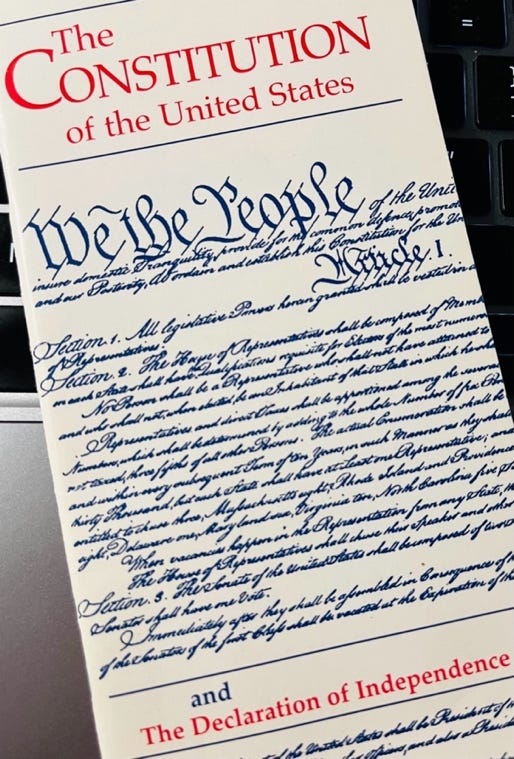 The
CONSTITUTION
of the United States
We the People of the Unit
insure domestic Tranquility, provide for the common defence, promot
and our Posterity, do ordain and establish this Constitution for the Un
Article I.
Section 1. All legislative Powers herein granted shall be vested in a
of Representatives.
Section 2. The House of Representatives shall be composed of Mem
in each State shall have the Qualifications requisite for Electors of the most numero
No Person shall be a Representative who shall not have attained to
and who shall not, when elected, be an Inhabitant of that State in which he sha
Representatives and direct Taxes shall be apportioned among the several
Numbers, which shall be determined by adding to the whole Number of free Per
not taxed, three fifths of all other Persons. The actual Enumeration shall be
and within every subsequent Term of ten Years, in such Manner as they sha
thirty Thousand, but each State shall have at Least one Representative; and
entitled to chuse three, Massachusetts eight, Rhode Island and Providence
eight, Delaware one, Maryland six, Virginia ten, North Carolina five, S
When vacancies happen in the Representation from any State, th
The House of Representatives shall chuse their Speaker and other
Section. 3. The Senate of the United States shall be composed of two
Senator shall have one Vote.
Immediately after they shall be assembled in Consequence of
of the Senators of the first Class shall be vacated at the Expiration of the
and
The Declaration of Independence
of the United States shall be President of